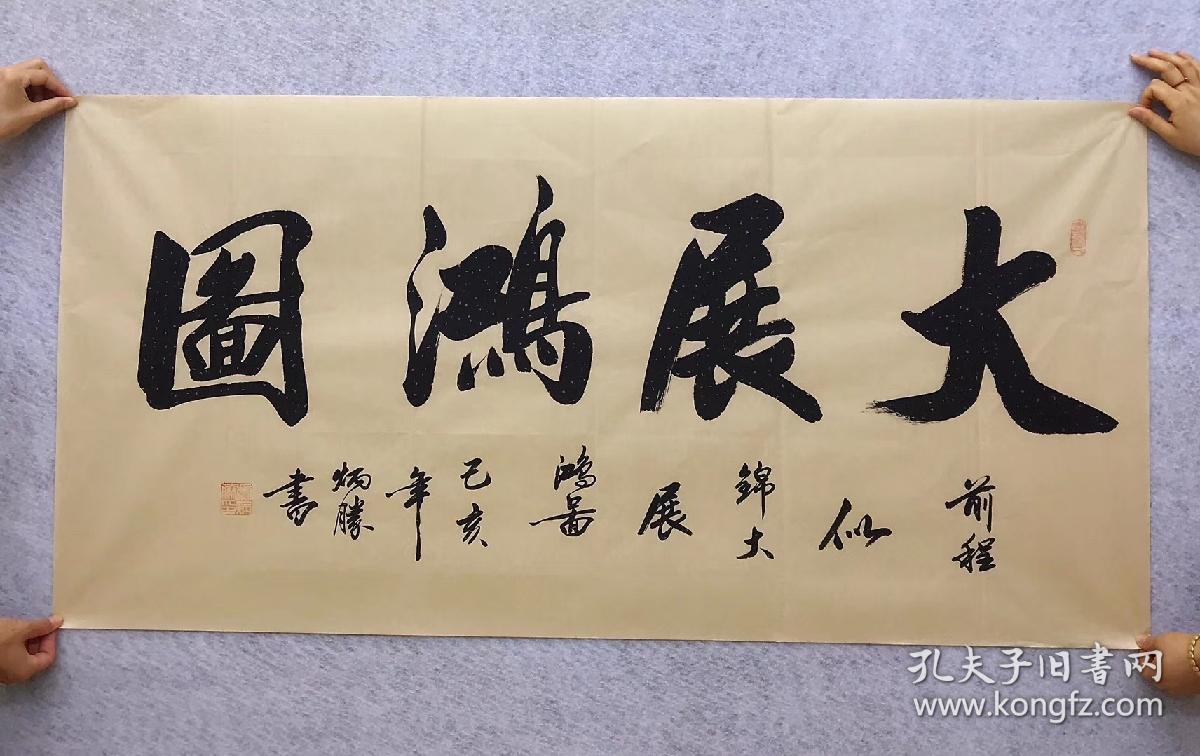 大展鴻圖
前程
似
錦大
展
鴻圖
己亥
年
炳勝
書
孔夫子旧书网
www.kongfz.com